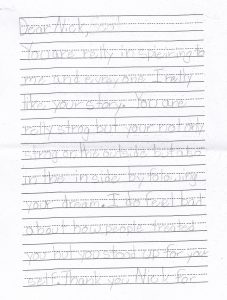 Dear Nick,
You are relly in spering to
me and every one I relly
like your story. You are
relly strog but your not only
strog on the outside but also
in the in side by folowing
your dream. I do feel bad
about how people treated
you but you stood up for your
self. Thank you Nick for